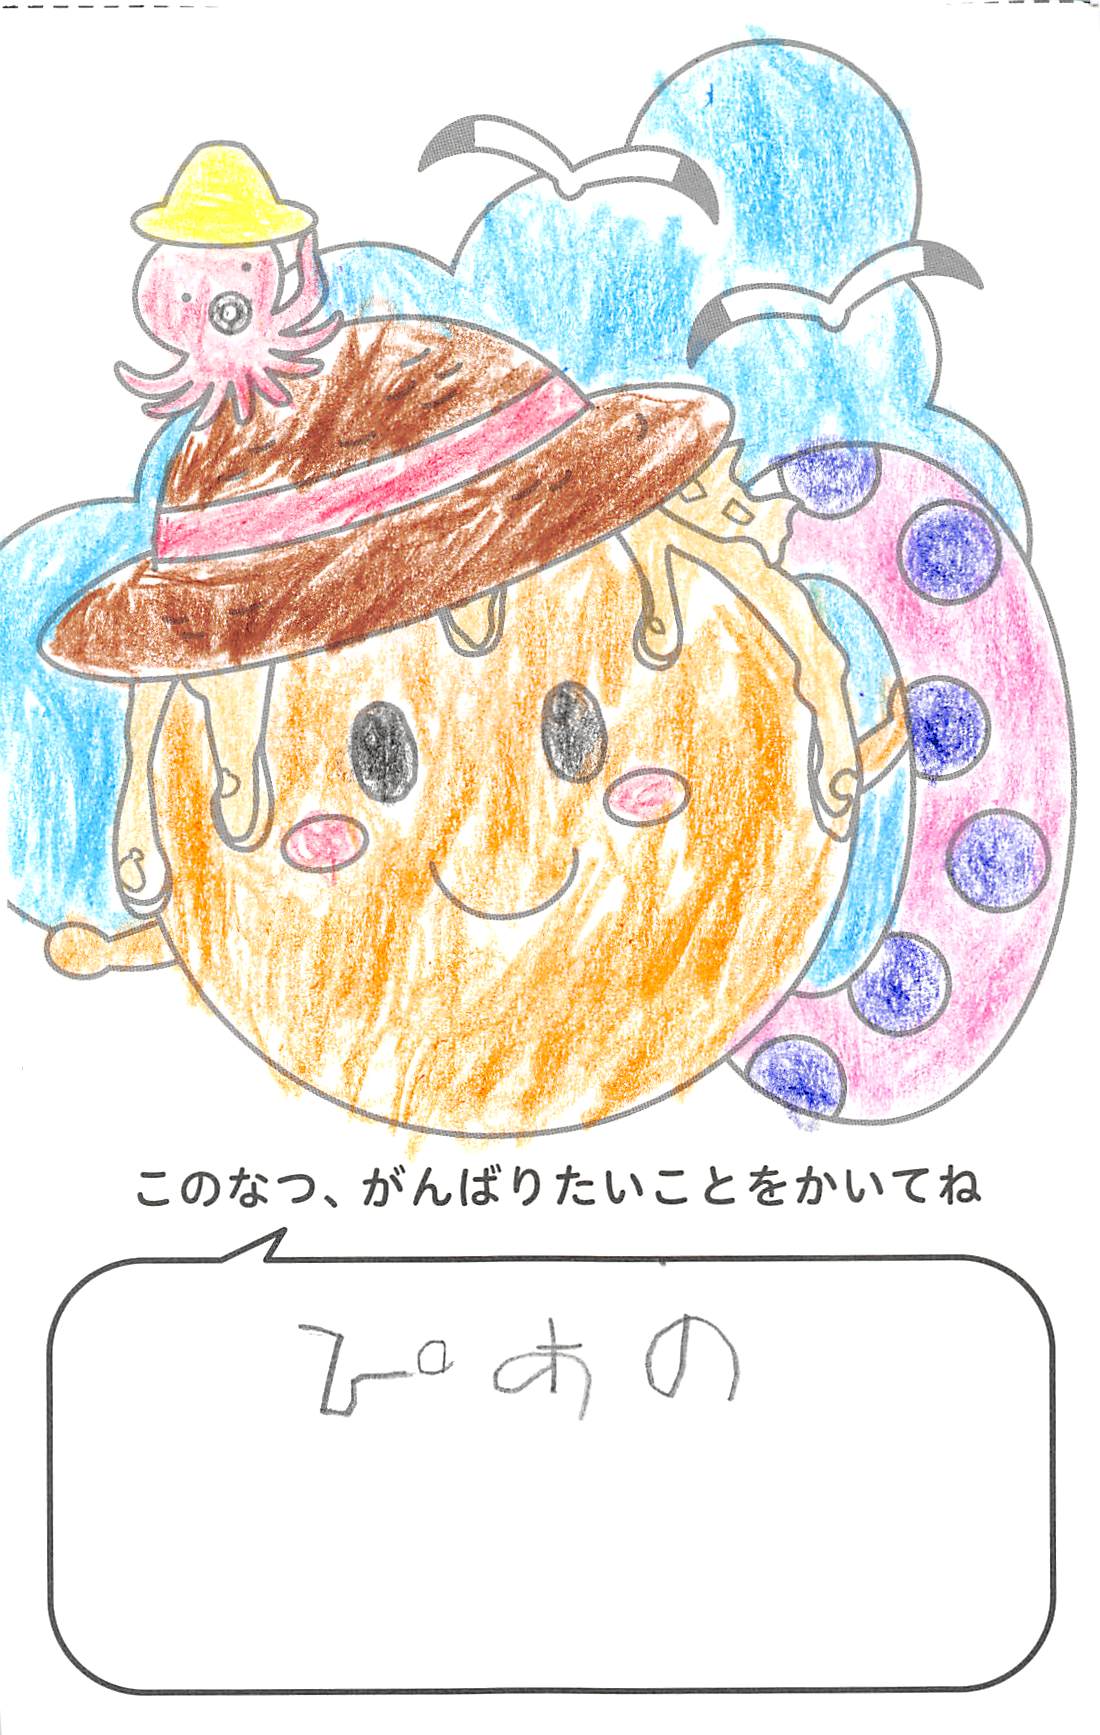 このなつ、がんばりたいことをかいてね
ぴあの